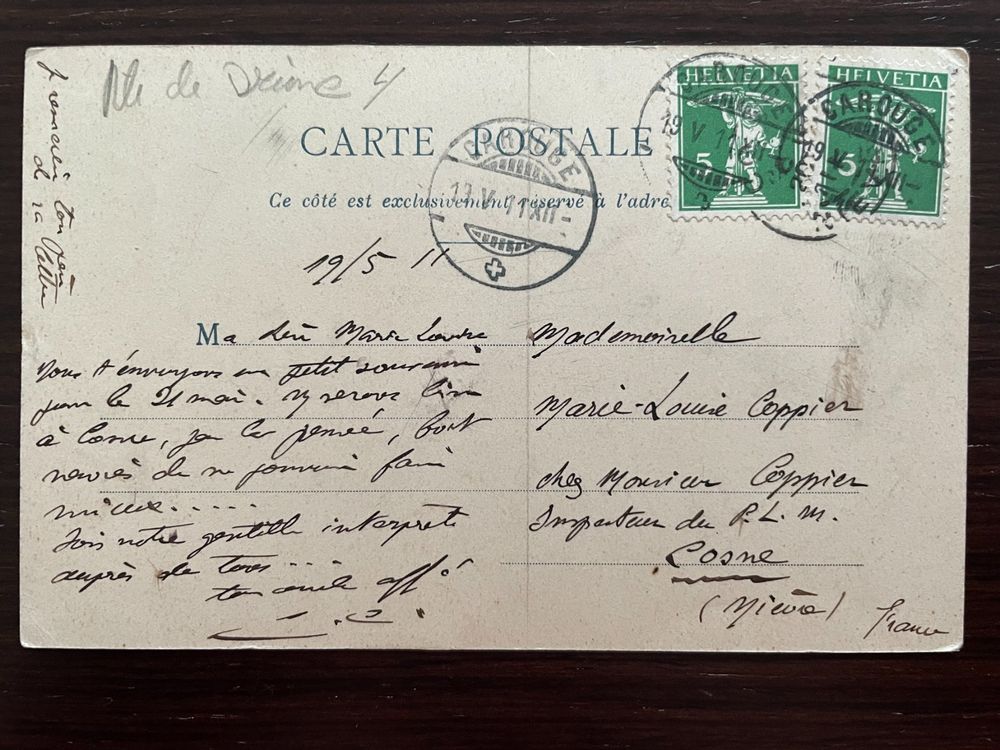 de
CARTE POSTALE
Ce côté est exclusivement réservé à l'adre
HELVETIA
5
HELVETIA
5
CAROUGE
19 V 11 XII -
CAROUGE
19 V 11 XII -
CAROUGE
19 V 11 XII -
Je remercie ton père
de sa lettre
19/5 11
Ma chère Marie Louise
Nous t'envoyons un petit souvenir
pour le 21 mai. Ns serons bien
à Cosne, par la pensée, fort
navrés de ne pouvoir faire
mieux.....
Sois notre gentille interprète
auprès de tous...
ton oncle aff!
Mademoiselle
Marie-Louise Coppier
chez Monsieur Coppier
Inspecteur du P.L.M.
Cosne
(Nièvre)
France